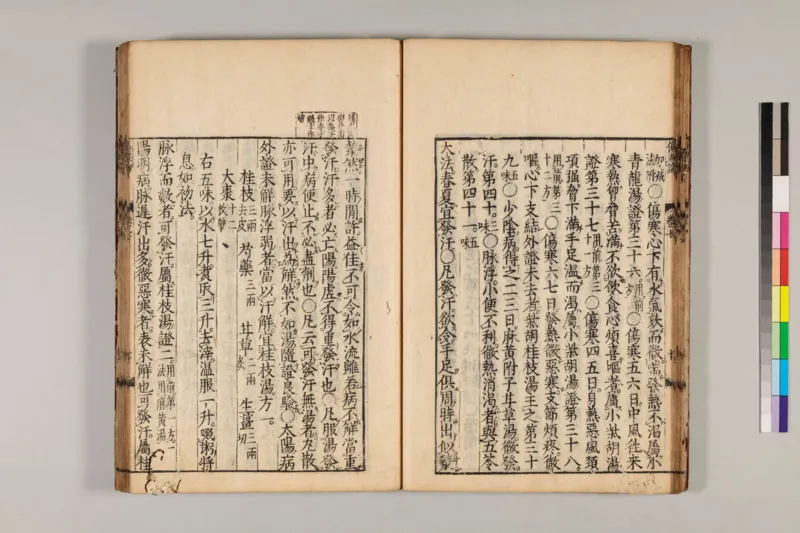 加減法附○傷寒心下有水氣欬而微喘發熱不渴屬小
青龍湯證第三十六用前○傷寒五六日中風往來
寒熱胷脅苦滿不欲飲食心煩喜嘔者屬小柴胡湯
證第三十七用前第三十一方○傷寒四五日身熱惡風頸
項強脅下滿手足溫而渴屬小柴胡湯證第三十八
用前第三十二方○傷寒六七日發熱微惡寒支節煩疼微
嘔心下支結外證未去者柴胡桂枝湯主之第三十
九五味○少陰病得之二三日麻黃附子甘草湯微發
汗第四十三味○脈浮小便不利微熱消渴者與五苓
散第四十一五味
大法春夏宜發汗○凡發汗欲令手足俱周時出似漐
漐然一時間許益佳不可令如水流離若病不解當重
發汗汗多者必亡陽陽虛不得重發汗也○凡服湯發
汗中病便止不必盡劑也○凡云可發汗無湯者丸散
亦可用要以汗出為解然不如湯隨證良驗○太陽病
外證未解脈浮弱者當以汗解宜桂枝湯方一
桂枝三兩去皮 芍藥三兩 甘草二兩炙 生薑三兩切
大棗十二枚擘
右五味以水七升煑取三升去滓溫服一升啜粥將
息如初法
脈浮而數者可發汗屬桂枝湯證二用前第一方一法用麻黃湯
陽明病脈遲汗出多微惡寒者表未解也可發汗屬桂